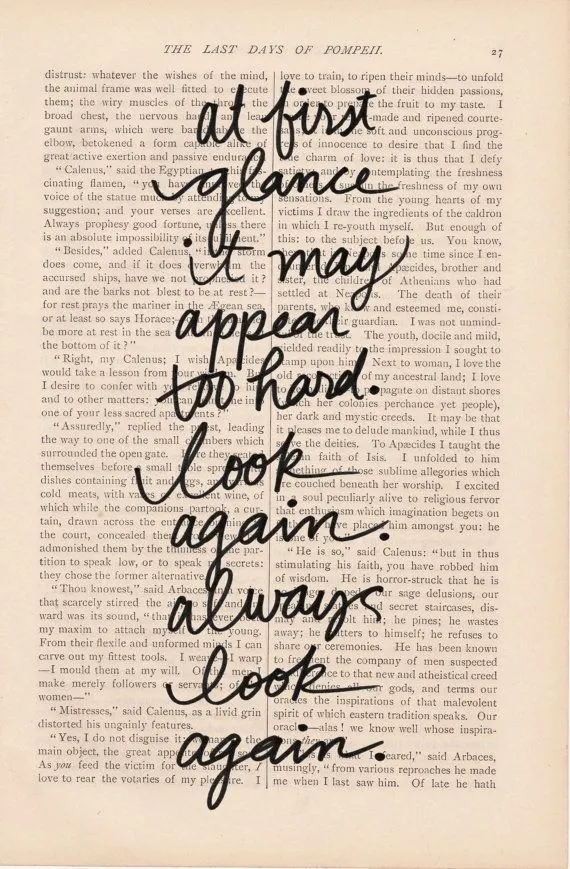 THE LAST DAYS OF POMPEII.
27
at first
glance
it may
appear
too hard.
look
again.
always
look
again.
distrust: whatever the wishes of the mind,
the animal frame was well fitted to execute
them; the wiry muscles of the
broad chest, the nervous
gaunt arms, which were
elbow, betokened a form capable alike of
great active exertion and passive endurance.
“Calenus,” said the Egyptian
cinating flamen, “you
voice of the statue
suggestion; and your verses are excellent.
Always prophesy good fortune, there
is an absolute impossibility of its fulfilment.”
“Besides,” added Calenus, storm
does come, and if it does the
accursed ships, have we not it?
and are the barks not blest to be at rest?—
for rest prays the mariner in the Ægean sea,
or at least so says Horace;
be more at rest in the sea
the bottom of it?”
“Right, my Calenus; I wish Apæcides
would take a lesson from your
I desire to confer with
and to other matters: in
one of your less sacred apartments?”
“Assuredly,” replied the priest, leading
the way to one of the small chambers which
surrounded the open gate.
themselves before a small table
dishes containing eggs,
cold meats, with wine, of
which while the companions partook, a cur-
tain, drawn across the
the court, concealed
admonished them by the thinness of the par-
tition to speak low, or to speak secrets:
they chose the former alternative.
“Thou knowest,” said Arbaces, voice
that scarcely stirred the air, so and in-
ward was its sound, “that
my maxim to attach myself the young.
From their flexile and unformed minds I can
carve out my fittest tools. I weave—I warp
—I mould them at my will. Of the men
make merely followers or servants; of the
women—”
“Mistresses,” said Calenus, as a livid grin
distorted his ungainly features.
“Yes, I do not disguise it:
main object, the great
As you feed the victim for the slaughter, I
love to rear the votaries of my pleasure. I
love to train, to ripen their minds—to unfold
sweet blossom of their hidden passions,
the fruit to my taste. I
made and ripened courte-
soft and unconscious prog-
of innocence to desire that I find the
charm of love: it is thus that I defy
contemplating the freshness
freshness of my own
sensations. From the young hearts of my
victims I draw the ingredients of the caldron
in which I re-youth myself. But enough of
this: to the subject before us. You know,
time since I en-
Apæcides, brother and
sister, the children Athenians who had
settled at The death of their
parents, and esteemed me, consti-
their guardian. I was not unmind-
of the trust. The youth, docile and mild,
yielded readily to the impression I sought to
stamp upon him. Next to woman, I love the
old of my ancestral land; I love
propagate on distant shores
her colonies perchance yet people),
her dark and mystic creeds. It may be that
it pleases me to delude mankind, while I thus
serve the deities. To Apæcides I taught the
faith of Isis. I unfolded to him
something of those sublime allegories which
are couched beneath her worship. I excited
in a soul peculiarly alive to religious fervor
that enthusiasm which imagination begets on
place him amongst you: he
“He is so,” said Calenus: “but in thus
stimulating his faith, you have robbed him
of wisdom. He is horror-struck that he is
our sage delusions, our
and secret staircases, dis-
him; he pines; he wastes
away; he mutters to himself; he refuses to
share our ceremonies. He has been known
to frequent the company of men suspected
to that new and atheistical creed
which denies all our gods, and terms our
oracles the inspirations of that malevolent
spirit of which eastern tradition speaks. Our
oracles—alas! we know well whose inspira-
feared,” said Arbaces,
musingly, “from various reproaches he made
me when I last saw him. Of late he hath